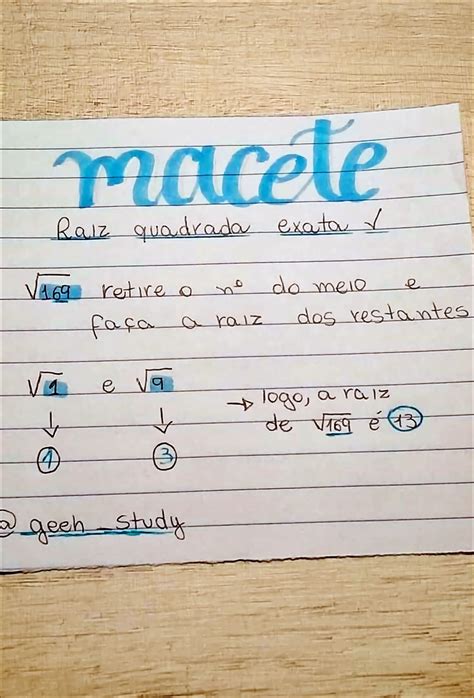 macete
Raiz quadrada exata √
√169 retire o nº do meio e
faça a raiz dos restantes
√1 e √9
↓ ↓
1 3
→ logo, a raiz
de √169 é 13
@geeh_study